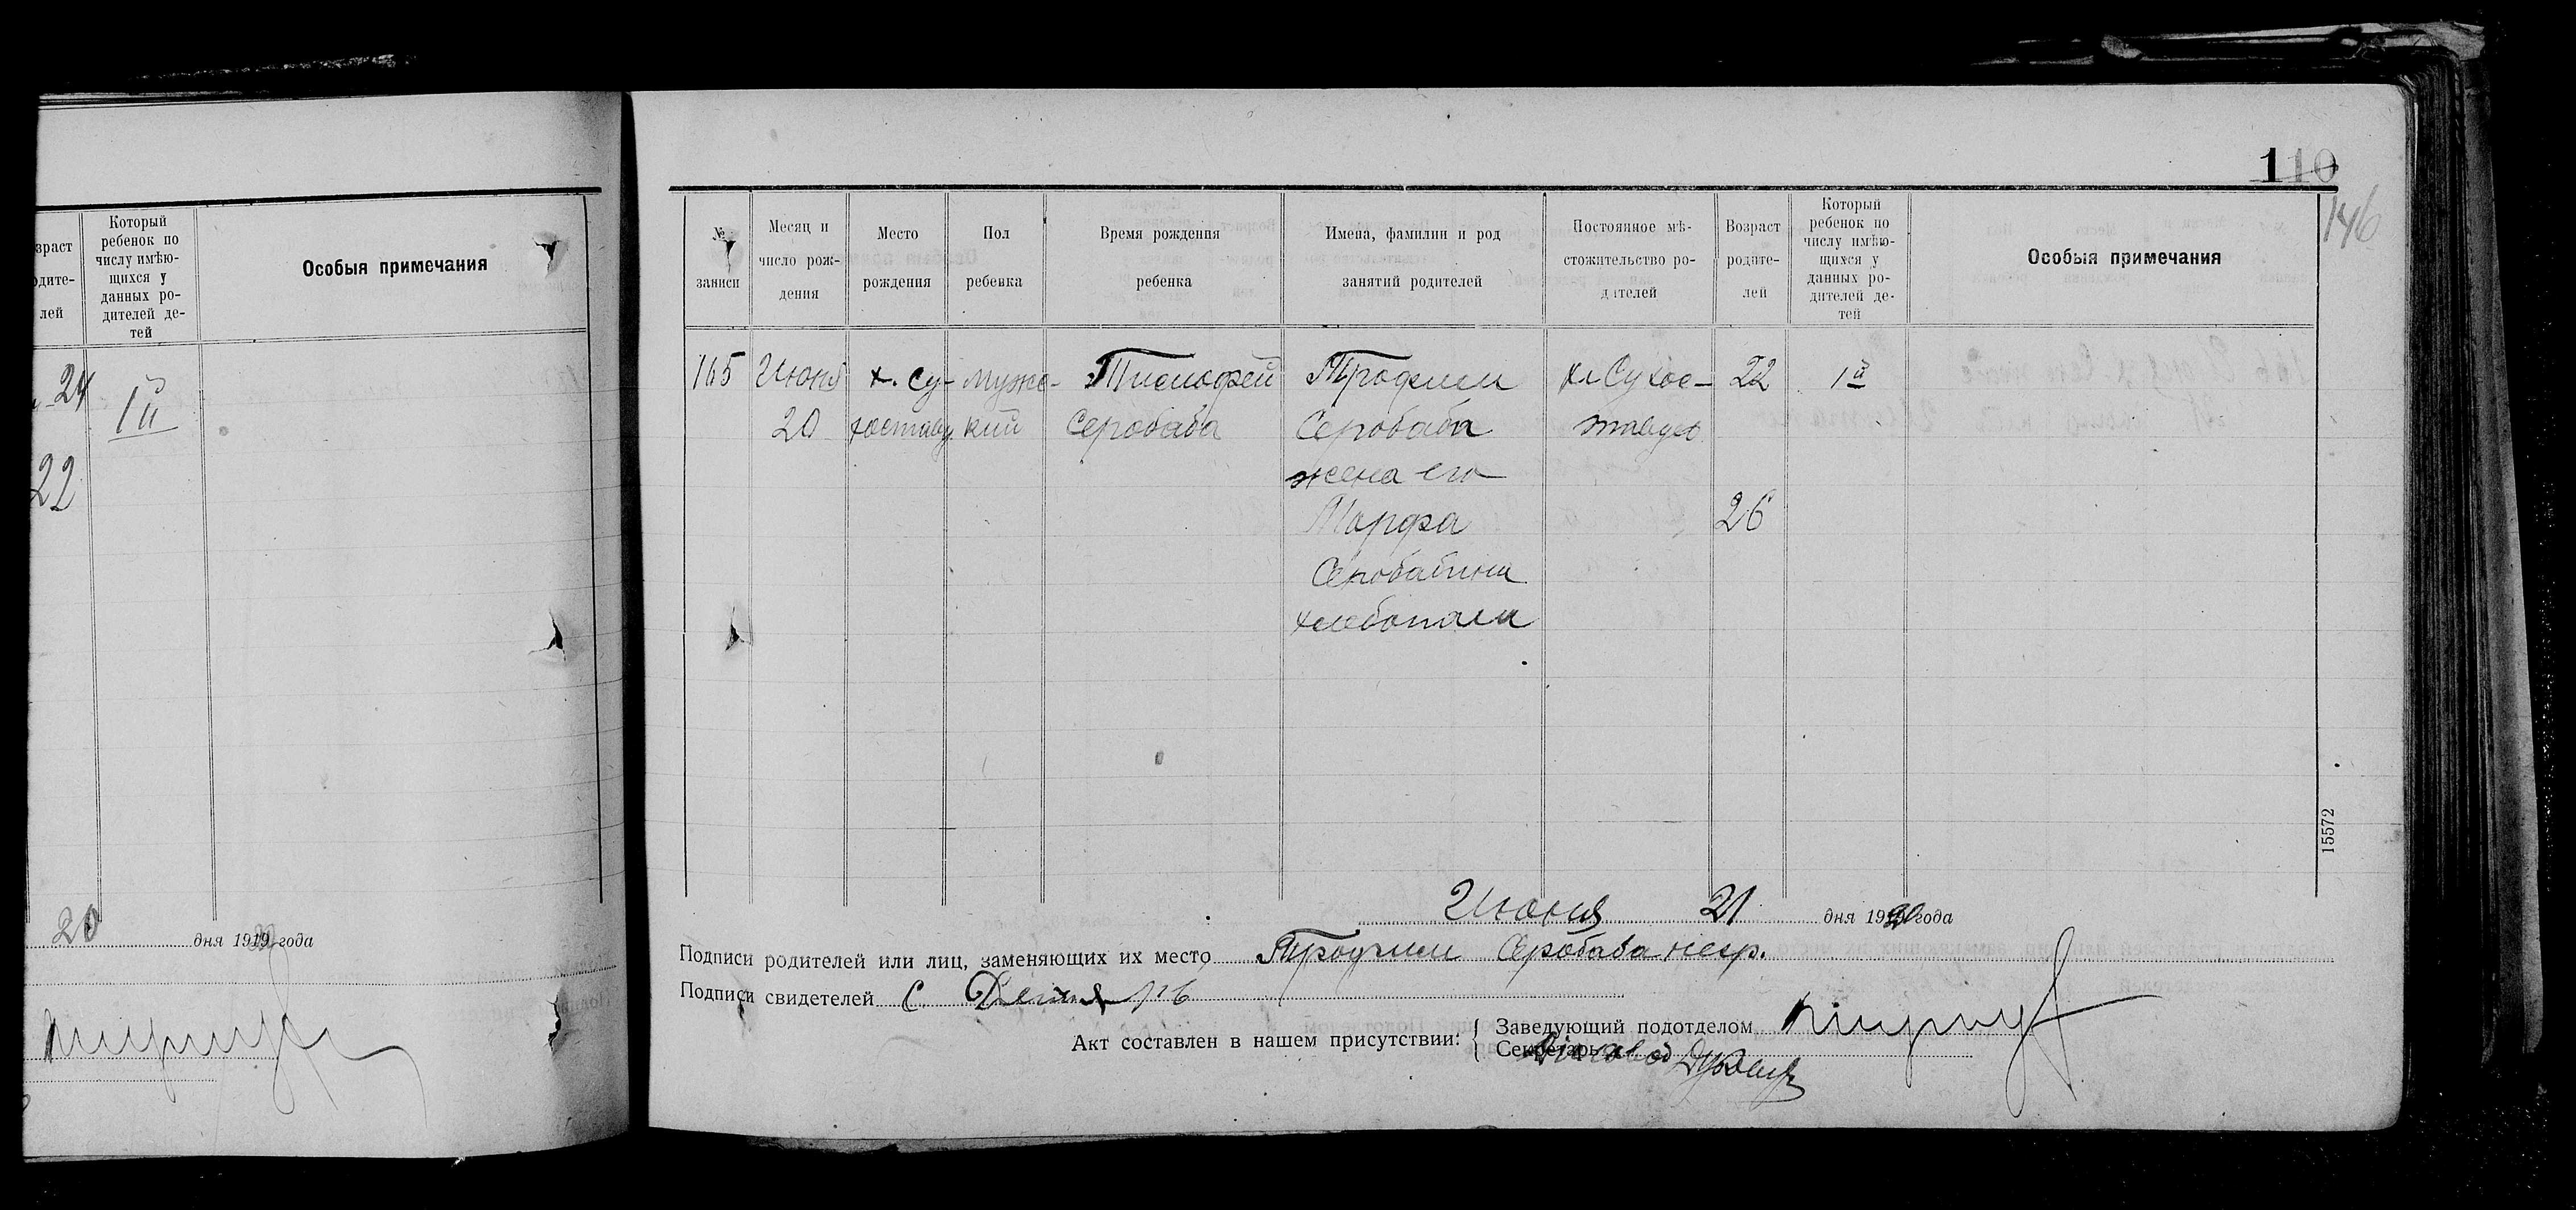 110
146
зраст
одите-
лей
Который
ребенок по
числу имѣю-
щихся у
данных ро-
дителей де-
тей
Особыя примечания
24
1й
22
20 дня 1919 года
№
записи
Месяц и
число рож-
дения
Место
рождения
Пол
ребенка
Время рождения
ребенка
Имена, фамилии и род
занятий родителей
Постоянное мѣ-
стожительство ро-
дителей
Возраст
родите-
лей
Который
ребенок по
числу имѣю-
щихся у
данных ро-
дителей де-
тей
Особыя примечания
165 Июня х. Су- мужс- Тимофей Трофим хл Сухое- 22 1й
20 хоставу кий Серобаба Серобаба ставцев
жена его
Марфа 26
Серобабина
хлебопаш
15572
Июня 21 дня 1920 года
Подписи родителей или лиц, заменяющих их место Трофим Серобаба негр.
Подписи свидетелей С.
Акт составлен в нашем присутствии:
Заведующий подотделом
Секретарь